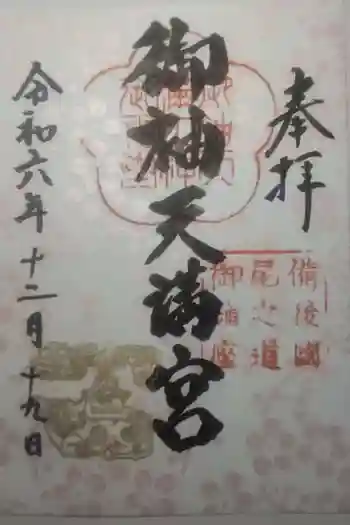 奉拝
備後國
尾之道
御袖天満宮
令和六年十二月十九日